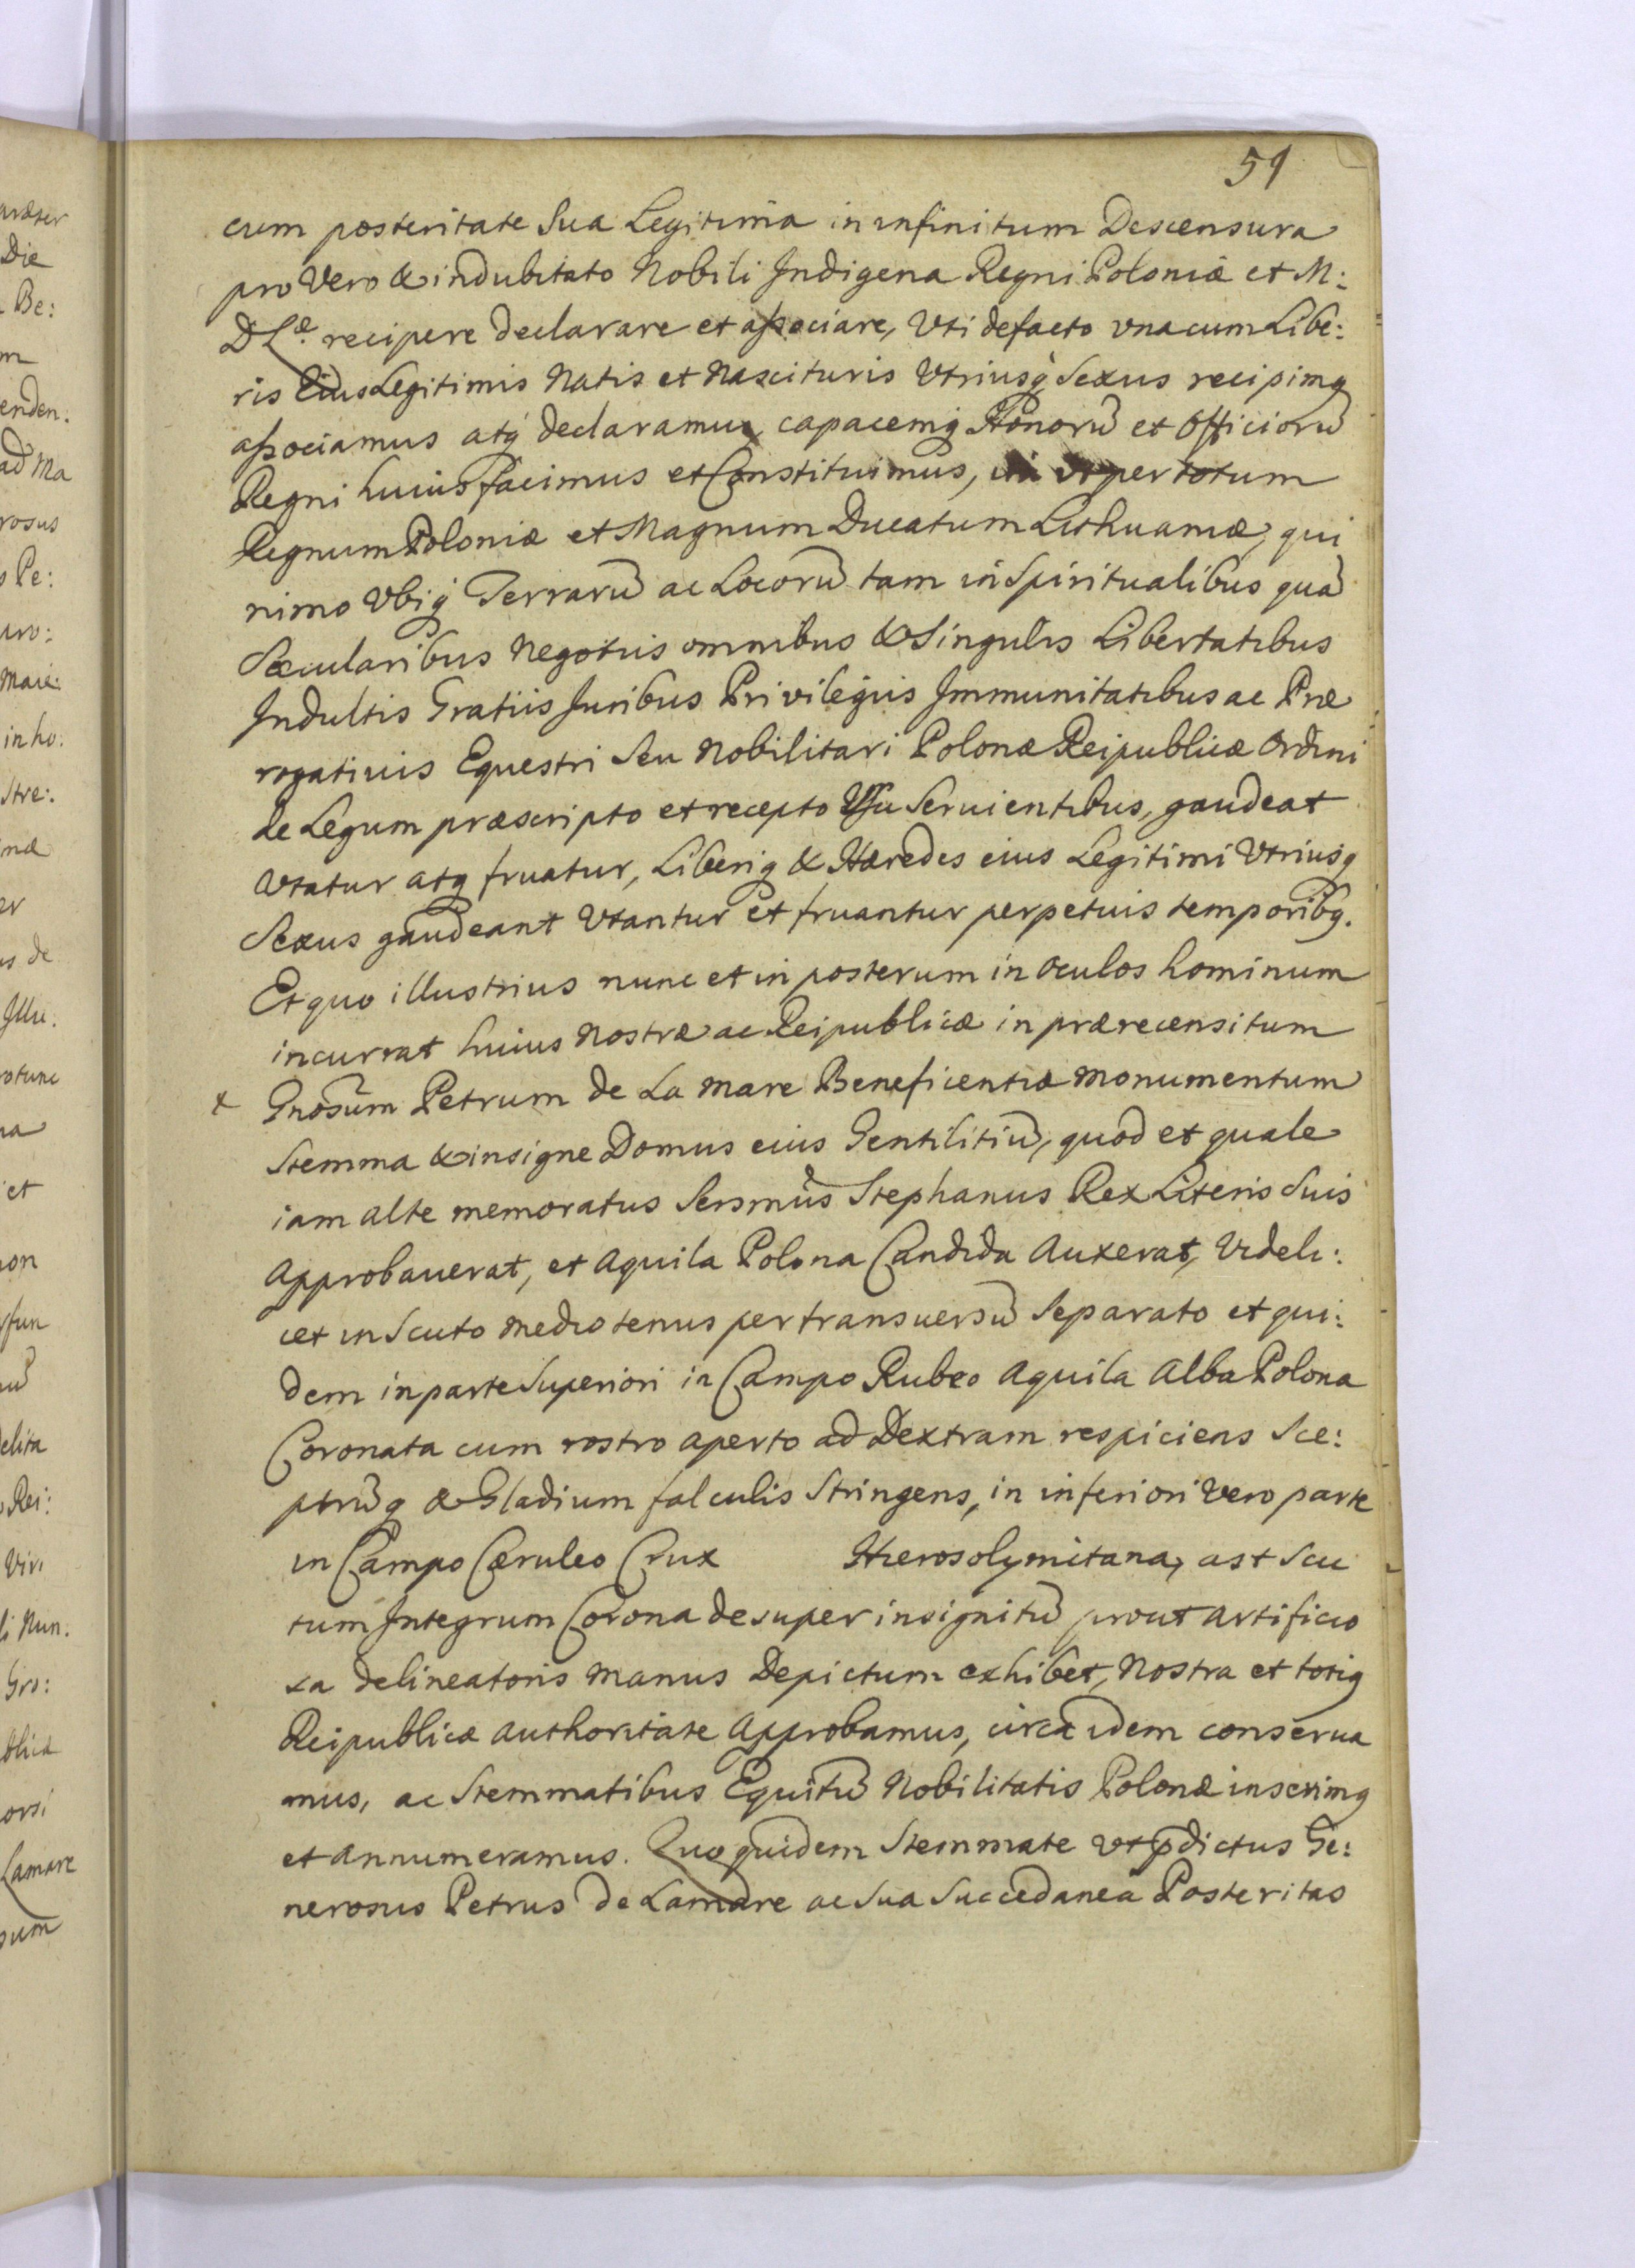 51
cum posteritate Sua Legitima in infinitum Descensura
pro Vero & indubitato Nobili Indigena Regni Poloniæ et M:
D Læ recipere declarare et associare, Vti de facto vna cum Libe:
ris Eius Legitimis Natis et Nascituris Vtriusq́ Sexus recipimq
associamus atq́ declaramus capacemq́ Honorū et Officiorū
Regni huius facimus et Constituimus, ut per totum
Regnum Poloniæ et Magnum Ducatum Lithuaniæ, qui
nimo Vbiq́ Terrarū ac Locorū tam in Spiritualibus quā
Sæcularibus Negotiis omnibus & Singulis Libertatibus
Indultis Gratiis Iuribus Privilegiis Immunitatibus ac Præ
rogativis Equestri Seu Nobilitari Polonæ Reipublicæ Ordini
de Legum præscripto et recepto Vsu Seruientibus, gaudeat
Vtatur atq fruatur, Liberiq & Hæredes eius Legitimi Vtriusq
Sexus gaudeant Vtantur et fruantur perpetuis temporibq.
Et quo illustrius nunc et in posterum in oculos hominum
incurrat huius Nostræ ac Reipublicæ in prærecensitum
x Gnosum Petrum de La Mare Beneficentiæ Monumentum
Stemma & insigne Domus eius Gentilitiū, quod et quale
iam alte memoratus Sersmūs Stephanus Rex Literis Suis
Approbauerat, et Aquila Polona Candida Auxerat, Videli:
cet in Scuto medio tenus per transuersū Separato et qui:
dem in parte Superiori in Campo Rubeo Aquila Alba Polona
Coronata cum rostro aperto ad Dextram respiciens Sce:
ptrūq & Gladium falculis Stringens, in inferiori vero parte
in Campo Cæruleo Crux Hierosolymitana, ast Scu
tum Integrum Corona desuper insignitū prout Artificio
sa delineatoris Manus Depictum exhibet, Nostra et totiq
Reipublicæ Authoritate Approbamus, circa idem conserua
mus, ac Stemmatibus Equitū Nobilitatis Polonæ inserimq
et Annumeramus. Quo quidem Stemmate vt pdictus Ge:
nerosus Petrus de Lamare ac Sua Succedanea Posteritas